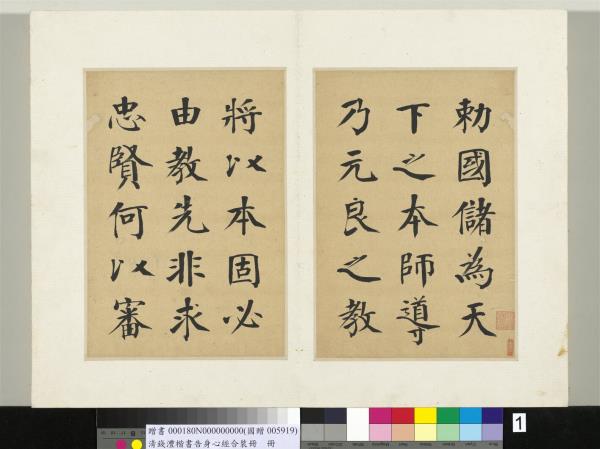 勅國儲為天
下之本師導
乃元良之教
將以本固必
由教先非求
忠賢何以審
贈書 000180N000000000(國贈 005919)
清錢澧楷書告身心經合裝冊 冊
1